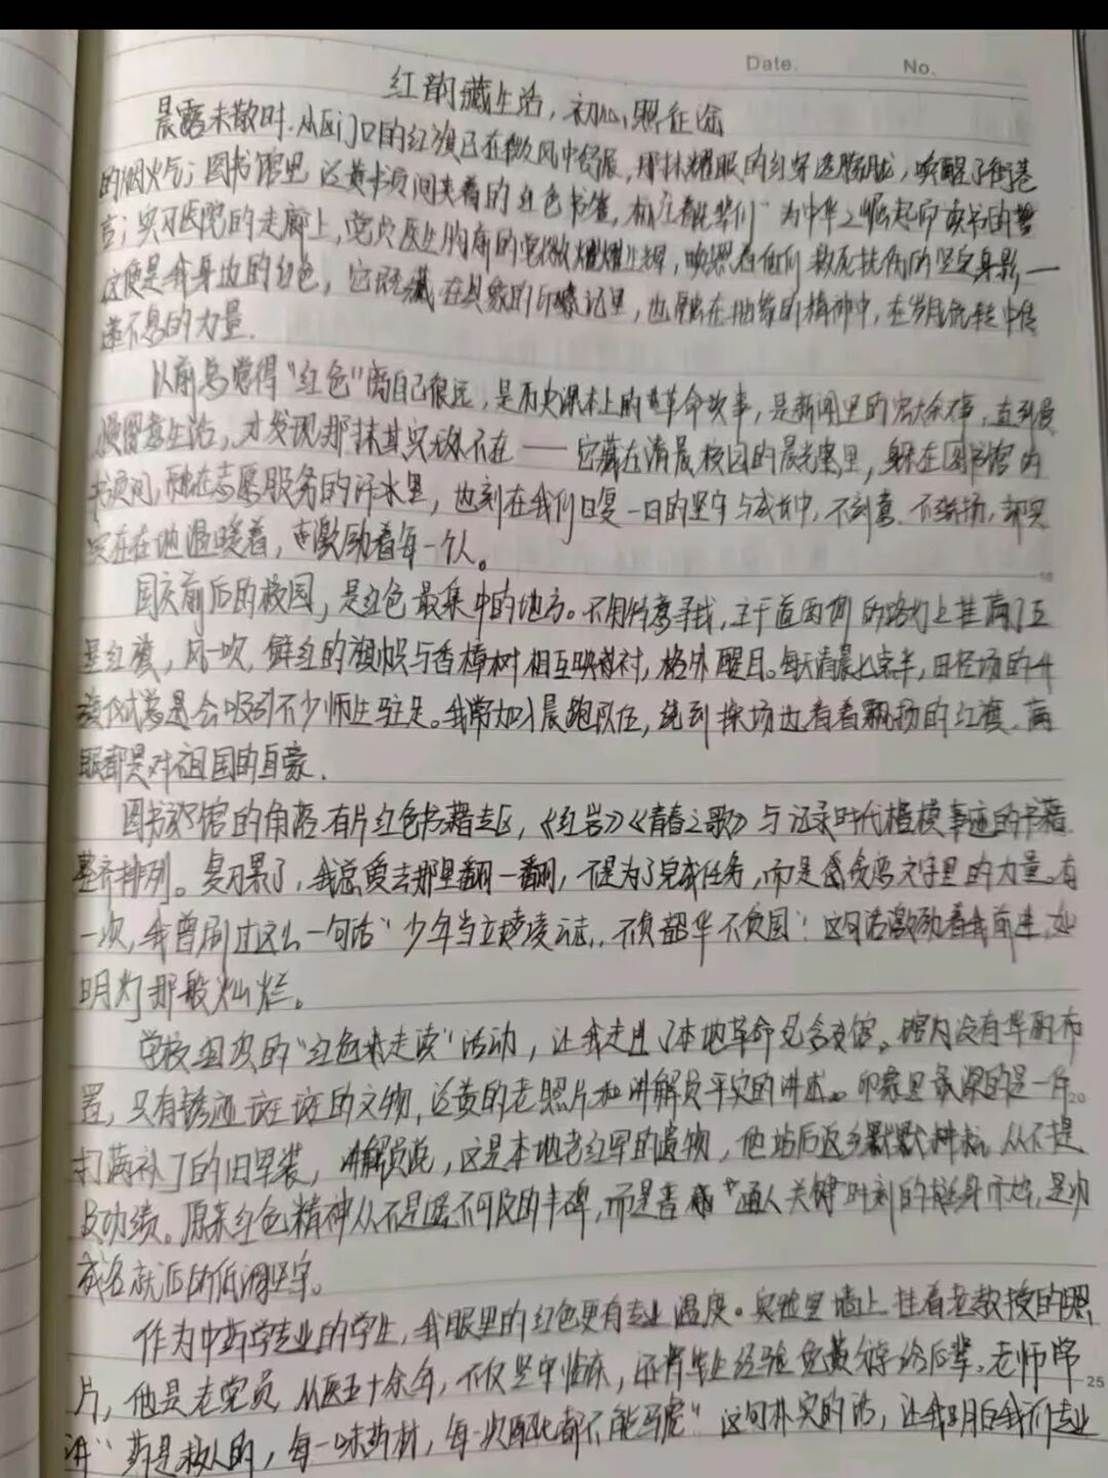 Date.	No.
红韵藏生活，初心照征途
晨露未散时，从医门口的红旗已在微风中舒展，那抹耀眼的红穿透朦胧，唤醒了街巷
的烟火气；图书馆里 泛黄书页间夹着的红色书签，标注着先辈们"为中华之崛起而读书的誓
言；实习医院的走廊上，党员医生胸前的党徽熠熠生辉，映照着他们救死扶伤的坚定身影，一
这便是我身边的红色，它既藏在具象的印记里，也融在抽象的精神中，在岁月流转中传
递不息的力量.
以前总觉得"红色"离自己很远，是历史课本上的革命故事，是新闻里的宏大叙事，直到
慢留意生活，才发现那抹其实无处不在——它藏在清晨校园的晨光里，躲在图书馆的
书页间，融在志愿服务的汗水里，也刻在我们日复一日的坚守与成长中，不刻意、不张扬，却实
实在在地温暖着，激励着每一个人。
国庆前后的校园，是红色最集中的地方。不用特意寻找，主干道两侧的路灯上挂满了五
星红旗，风一吹，鲜红的旗帜与香樟树相互映衬，格外醒目。每天清晨七点半，田径场的升
旗仪式总是会吸引不少师生驻足。我常加入晨跑队伍，绕到操场边看看飘扬的红旗，满
眼都是对祖国的自豪.
图书馆的角落有片红色书籍专区，《红岩》《青春之歌》与记录时代楷模事迹的书籍
整齐排列。复习累了，我总爱去那里翻一翻，不是为了完成任务，而是贪恋文字里的力量。有
一次，我曾刷过这么一句话"少年当立凌云志，不负韶华不负国！这句话激励着我前进，如
明灯那般灿烂。
学校组织的"红色走读"活动，让我走进了本地革命纪念馆。馆内没有华丽的布
置，只有锈迹斑斑的文物，泛黄的老照片和讲解员平实的讲述。印象里最深的是一件
打满补丁的旧军装，讲解员说，这是本地老红军的遗物，他战后返乡默默耕耘，从不提
及功绩。原来红色精神从不是遥不可及的丰碑，而是普通人关键时刻的挺身而出，是功
成名就后的低调坚守。
作为中药学专业的学生，我眼里的红色更有专业温度。实验室墙上挂着老教授的照
片，他是老党员，从医五十余年，不仅坚守临床，还将毕生经验免费分享给后辈。老师常
讲"药是救人的，每一味药材，每一次配比都不能马虎"这句朴实的话，让我明白我们专业